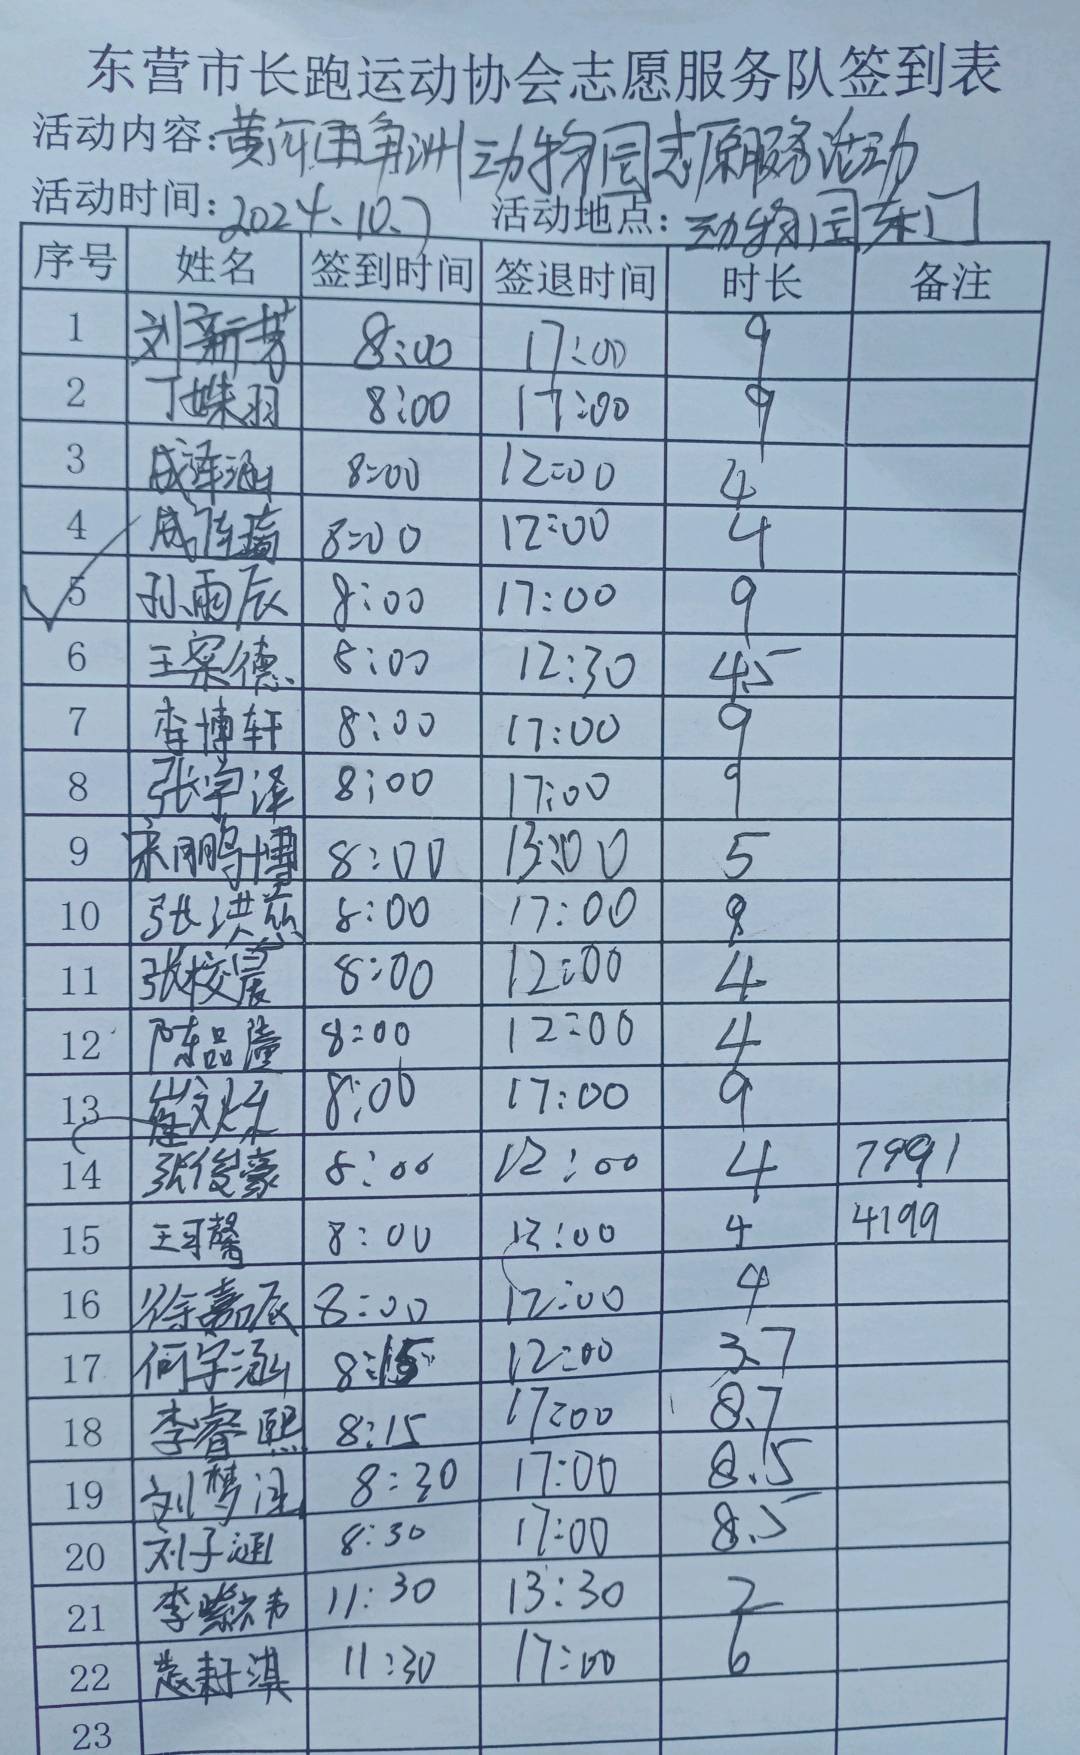 东营市长跑运动协会志愿服务队签到表
活动内容:黄河三角洲动物园志愿服务活动
活动时间:2024.10.7 活动地点:动物园东门
序号 姓名 签到时间 签退时间 时长 备注
1 刘新芳 8:00 17:00 9
2 丁姝羽 8:00 17:00 9
3 8:00 12:00 4
4 8:00 12:00 4
5 孙雨辰 8:00 17:00 9
6 王梁德 8:00 12:30 4.5
7 李博轩 8:00 17:00 9
8 张宇泽 8:00 17:00 9
9 宋鹏博 8:00 13:00 5
10 张洪慈 8:00 17:00 9
11 张校晨 8:00 12:00 4
12 陈品潼 8:00 12:00 4
13 8:00 17:00 9
14 张俊豪 8:00 12:00 4 7991
15 王可馨 8:00 12:00 4 4199
16 徐嘉辰 8:00 12:00 4
17 何宇涵 8:15 12:00 3.7
18 李睿熙 8:15 17:00 8.7
19 8:30 17:00 8.5
20 刘子涵 8:30 17:00 8.5
21 11:30 13:30 2
22 11:30 17:00 6
23